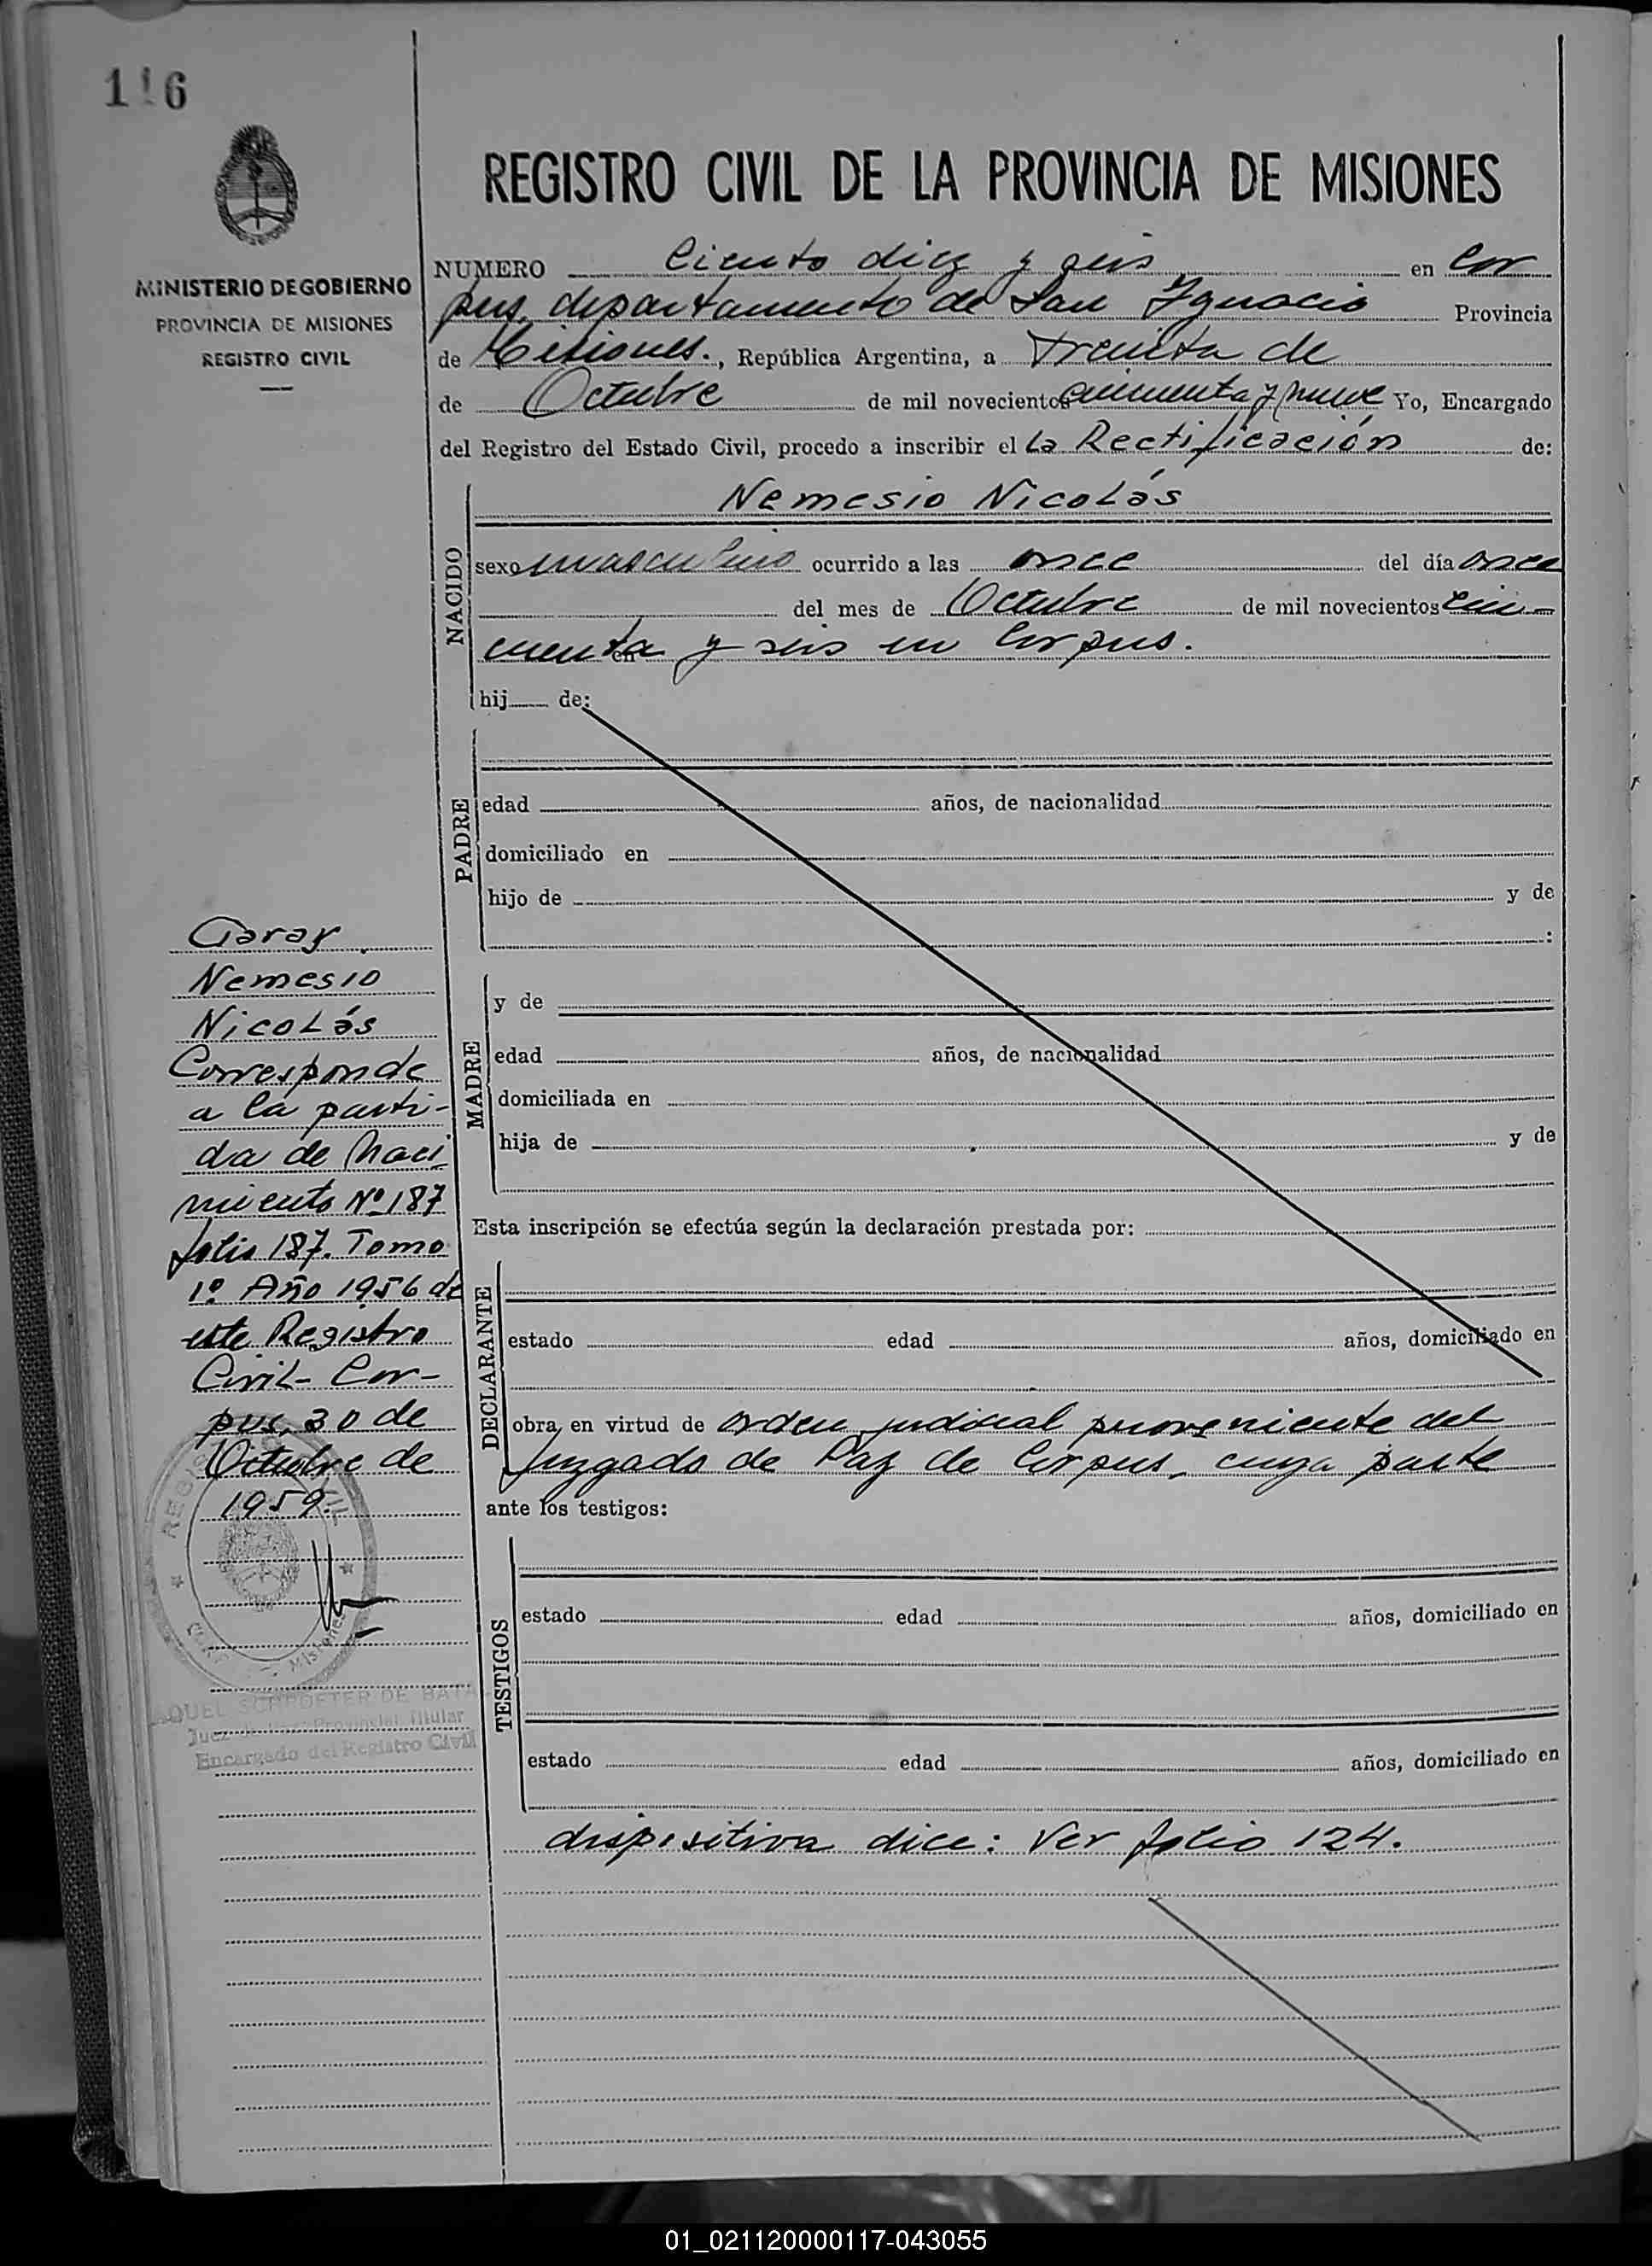 116
MINISTERIO DE GOBIERNO
PROVINCIA DE MISIONES
REGISTRO CIVIL
REGISTRO CIVIL DE LA PROVINCIA DE MISIONES
NUMERO Ciento diez y seis en Cor
pus, departamento de San Ignacio Provincia
de Misiones., República Argentina, a Treinta de
de Octubre de mil novecientos cincuenta y nueve Yo, Encargado
del Registro del Estado Civil, procedo a inscribir el La Rectificación de:
NACIDO
Nemesio Nicolás
sexo masculino ocurrido a las once del día once
del mes de Octubre de mil novecientos cin-
cuenta y seis en Corpus.
hij de:
PADRE
edad años, de nacionalidad
domiciliado en
hijo de y de
:
MADRE
y de
edad años, de nacionalidad
domiciliada en
hija de y de
Esta inscripción se efectúa según la declaración prestada por:
DECLARANTE
estado edad años, domiciliado en
obra, en virtud de orden judicial proveniente del
Juzgado de Paz de Corpus, cuya parte
ante los testigos:
TESTIGOS
estado edad años, domiciliado en
estado edad años, domiciliado en
dispositiva dice: Ver folio 124.
Garay
Nemesio
Nicolás
Corresponde
a la parti-
da de Naci
miento Nº 187
folio 187. Tomo
1º Año 1956 de
este Registro
Civil- Cor-
pus, 30 de
Octubre de
1959.
REGIS
Misiones
DE BATA
Juez Provincial Titular
Encargado del Registro Civil
01_021120000117-043055